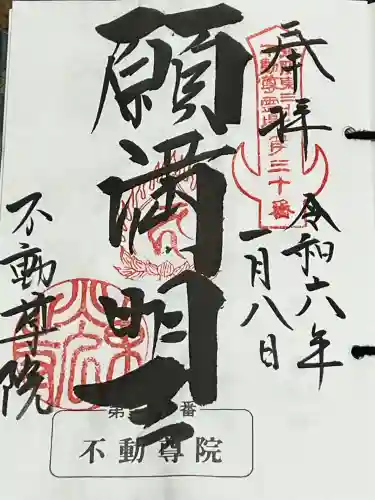 奉拝
令和六年
一月八日
願満明王
不動尊院
三十番
不動尊院